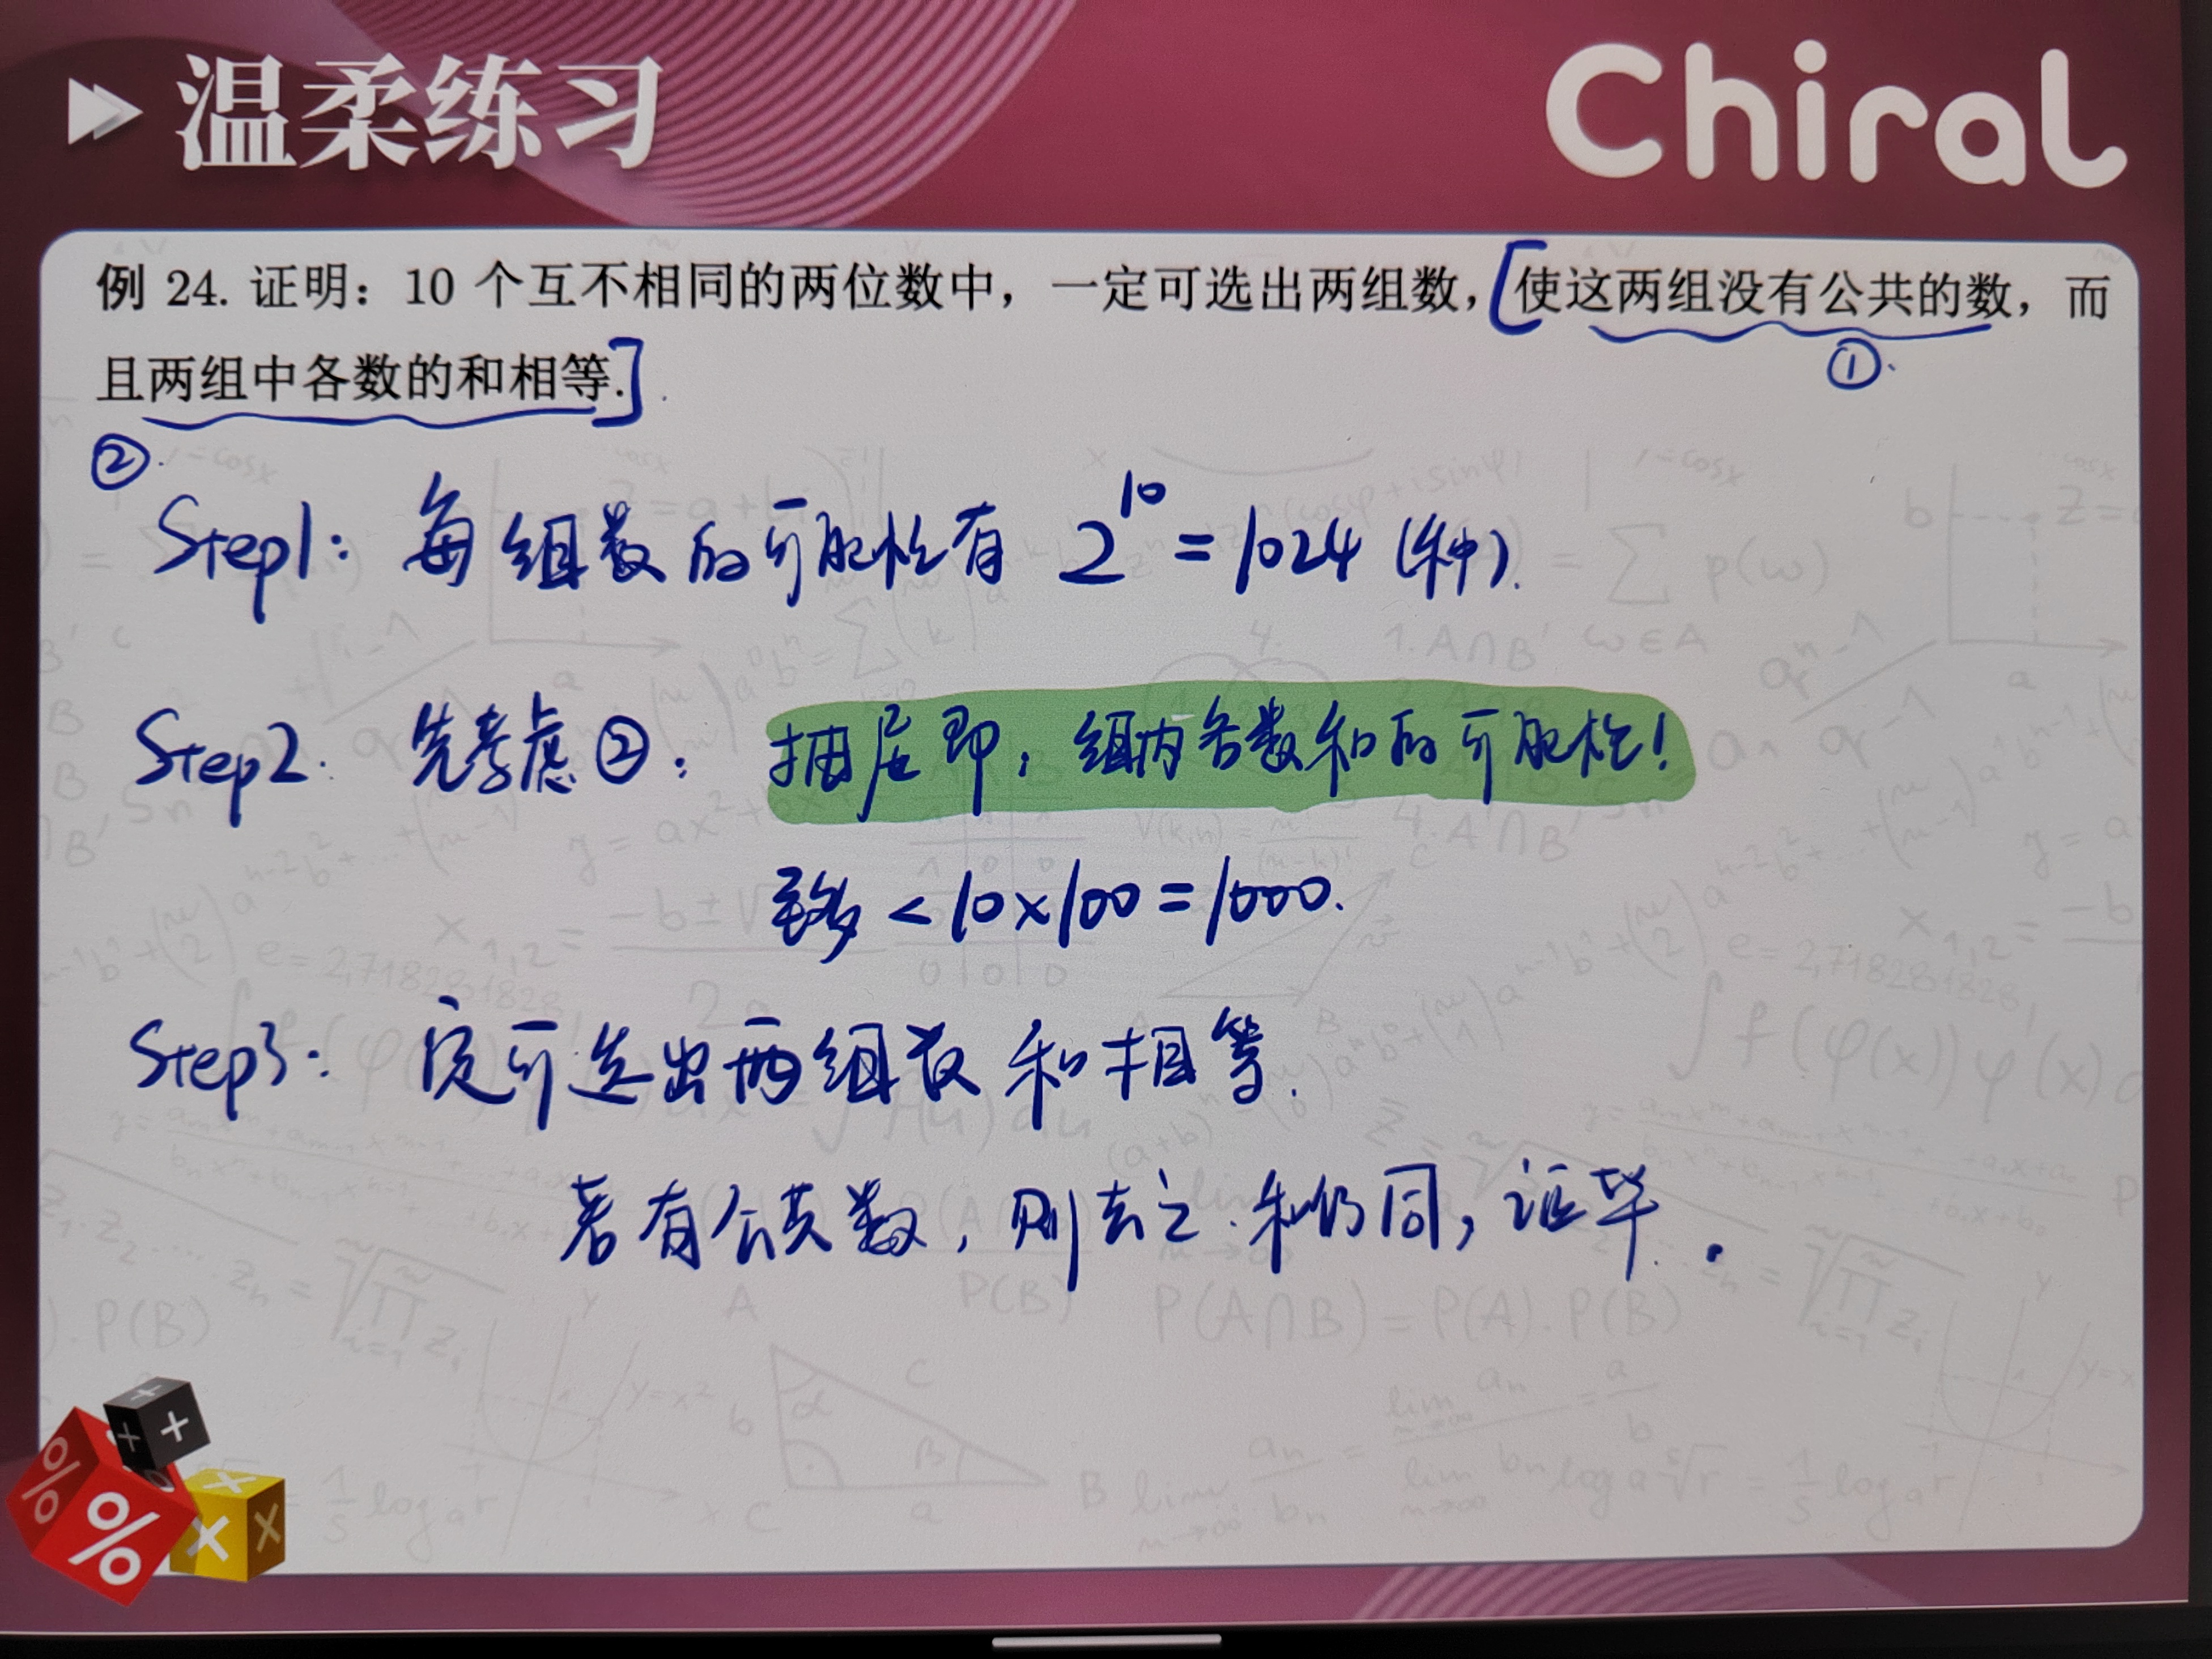 温柔练习
Chiral
例 24. 证明：10 个互不相同的两位数中，一定可选出两组数，[使这两组没有公共的数，而
①.
且两组中各数的和相等.]
②.
Step1: 每组数的可能性有 2^10 = 1024 (种).
Step2. 先考虑②: 抽屉即: 组内各数和的可能性!
至多 < 10×100 = 1000.
Step3: 定可选出两组数和相等.
若有公共数, 则去之. 和仍同, 证毕.